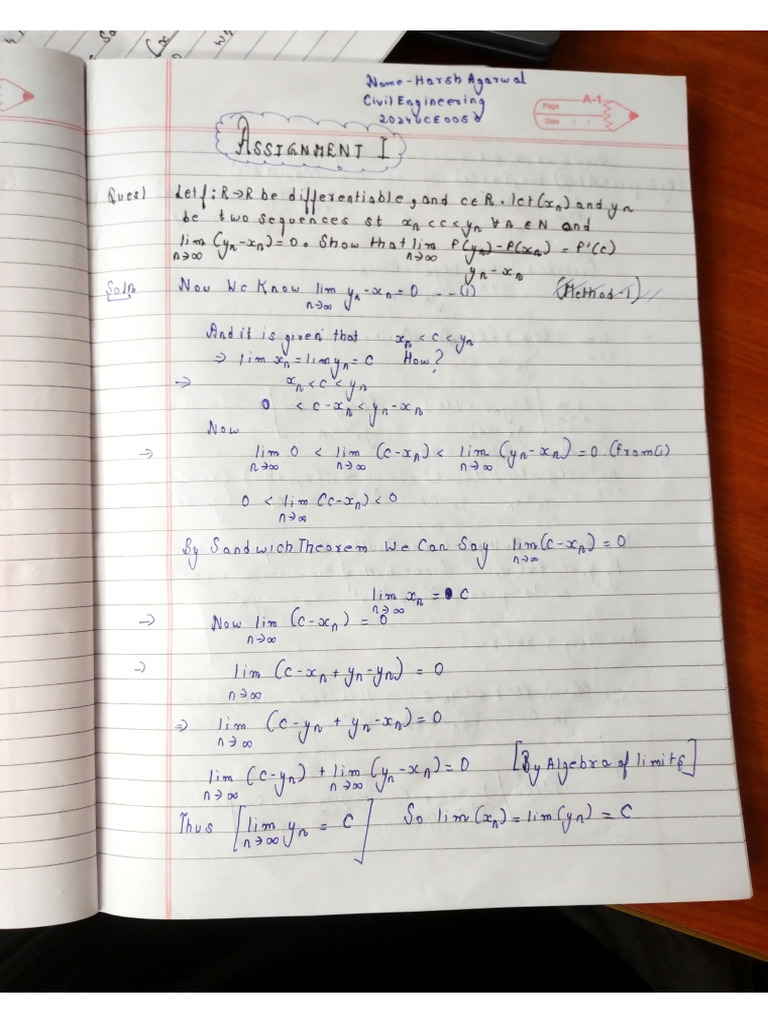 Name-Harsh Agarwal
Civil Engineering
A-1
Page
Date / /
ASSIGNMENT I
Ques1 Let f: R→R be differentiable, and c∈R. let (xₙ) and yₙ
be two sequences st xₙ<c<yₙ ∀ n∈N and
lim n→∞ (yₙ-xₙ)=0. Show that lim n→∞ f(yₙ)-f(xₙ) / yₙ-xₙ = f'(c)
Soln Now We Know lim n→∞ yₙ-xₙ=0 --(1) (Method-1)
And it is given that xₙ<c<yₙ
⇒ lim xₙ=lim yₙ=c How?
→ xₙ<c<yₙ
0 <c-xₙ<yₙ-xₙ
Now
→ lim n→∞ 0 < lim n→∞ (c-xₙ) < lim n→∞ (yₙ-xₙ)=0 (from(1)
0 < lim n→∞ (c-xₙ) < 0
By Sandwich Theorem We Can Say lim n→∞ (c-xₙ)=0
lim n→∞ xₙ = c
→ Now lim n→∞ (c-xₙ) = 0
→ lim n→∞ (c-xₙ+yₙ-yₙ) = 0
⇒ lim n→∞ (c-yₙ+yₙ-xₙ)=0
lim n→∞ (c-yₙ)+lim n→∞ (yₙ-xₙ)=0 [By Algebra of limits]
Thus [lim n→∞ yₙ = c] So lim(xₙ)=lim(yₙ)=c